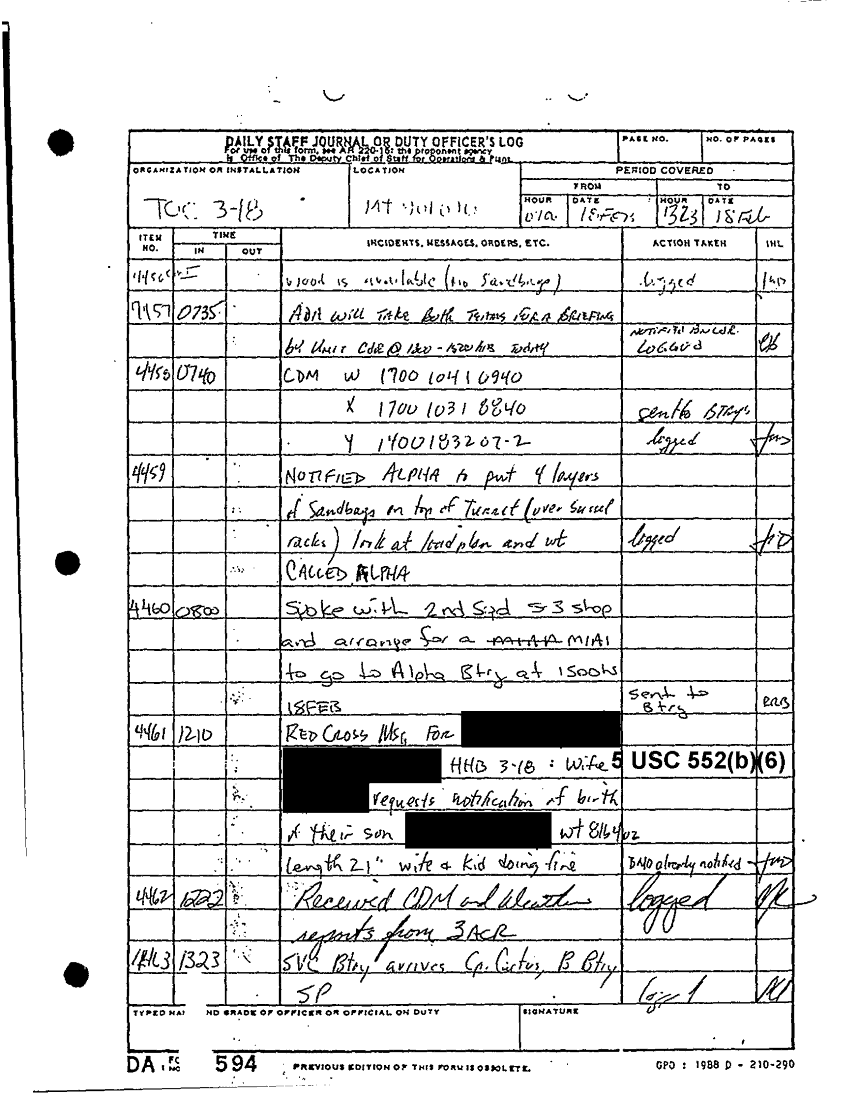 DAILY STAFF JOURNAL OR DUTY OFFICER'S LOG
For use of this form, see AR 220-15; the proponent agency
is Office of The Deputy Chief of Staff for Operations & Plans.
PAGE NO.
NO. OF PAGES
ORGANIZATION OR INSTALLATION
LOCATION
PERIOD COVERED
FROM
TO
TOC 3-18
HOUR
DATE
HOUR
DATE
18 Feb
1323
18 Feb
ITEM NO.
TIME
IN
OUT
INCIDENTS, MESSAGES, ORDERS, ETC.
ACTION TAKEN
INL
wood is available (no Sandbags)
logged
0735
ADA will Take Both Teams FOR A BRIEFING
by Unit CDR @ 1300 - 1500 hrs Today
LOGGED
0740
CDM W 1700 1041 0940
X 1700 1031 8840
sent to BTRY's
Y 1400183207-2
logged
4459
NOTIFIED ALPHA to put 4 layers
of Sandbags on top of Turret (over
racks) look at loadplan and wt
logged
CALLED ALPHA
4460 0800
Spoke with 2nd Sqd S-3 shop
and arrange for a M1A1
to go to Alpha Btry at 1500hrs
18FEB
sent to Btry
RRB
4461 1210
RED CROSS MSG FOR
HHB 3-18 : Wife 5 USC 552(b)(6)
requests notification of birth
of their son wt 8lb 4oz
length 21" wife & kid doing fine
already notified
4462 1222
Received CDM and Weather
logged
reports from 3ACR
1323
SVC Btry arrives Cp. Cactus, B Btry
SP
TYPED NA ND GRADE OF OFFICER OR OFFICIAL ON DUTY
SIGNATURE
DA 594
PREVIOUS EDITION OF THIS FORM IS OBSOLETE.
GPO : 1988 O - 210-290